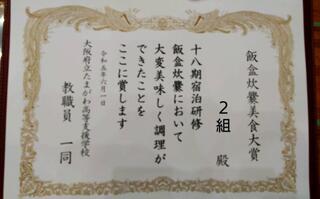 飯盒炊爨美食大賞
2組 殿
十八期宿泊研修
飯盒炊爨において
大変美味しく調理が
できたことを
ここに賞します
令和五年六月一日
大阪府立たまがわ高等支援学校
教職員 一同